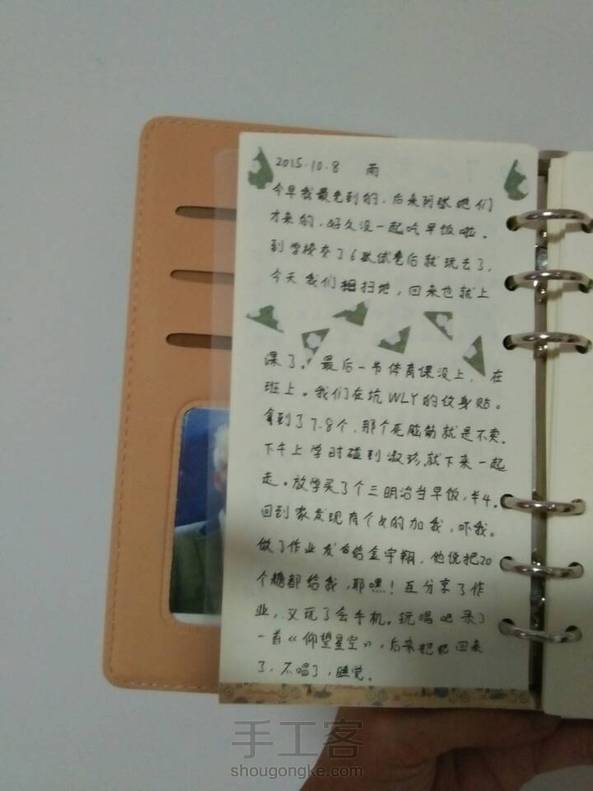 2015.10.8 雨
今早我最先到的，后来阿斌她们
才来的，好久没一起吃早饭啦。
到学校交了6张试卷后就玩去了，
今天我们组扫地，回来也就上
课了。最后一节体育课没上，在
班上。我们在坑WLY的纹身贴。
拿到了7.8个，那个死脑筋就是不卖。
下午上学时碰到淑珍，就下来一起
走。放学买了个三明治当早饭，￥4。
回到家发现有个女的加我，吓我。
做了作业发给金宇翔，他说把20
个糖都给我，耶嘿！互分享了作
业，又玩了会手机。玩唱吧录了
一首《仰望星空》，后来把把回来
了，不唱了，睡觉。
手工客
shougongke.com